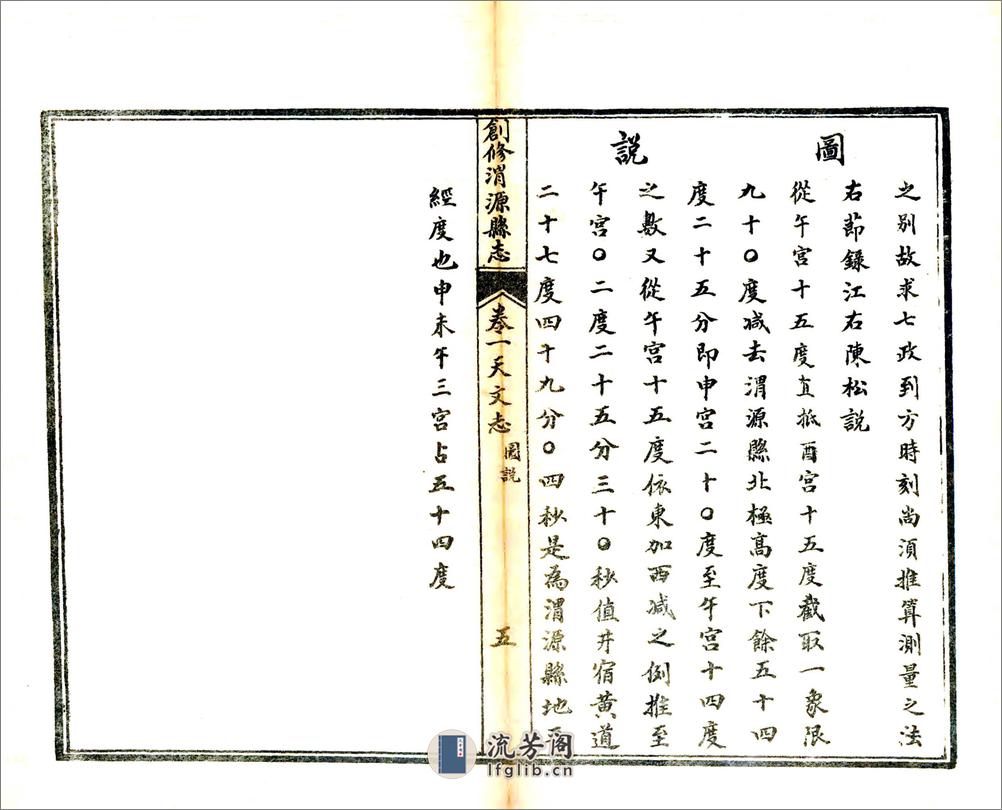 圖說
之別故求七政到方時刻尚須推算測量之法
右節錄江右陳松說
從午宮十五度直抵酉宮十五度截取一象限
九十〇度减去渭源縣北極高度下餘五十四
度二十五分即申宮二十〇度至午宮十四度
之數又從午宮十五度依東加西减之例推至
午宮〇二度二十五分三十〇秒值井宿黃道
二十七度四十九分〇四秒是為渭源縣地
創修渭源縣志
卷一天文志
圖說
五
經度也申未午三宮占五十四度
流芳阁
lfglib.cn